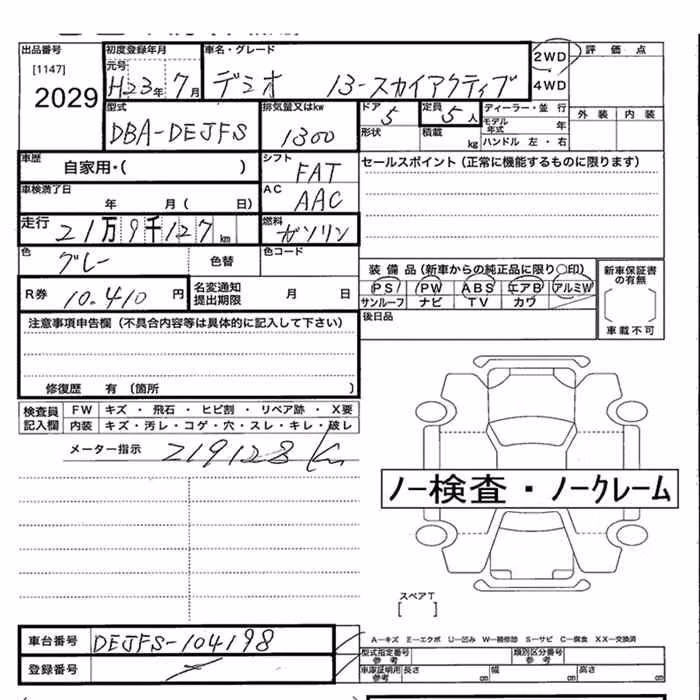 出品番号 初度登録年月 車名・グレード 2WD 評価点
[1147] 元号 4WD
2029 H23年 7月 デミオ 13-スカイアクティブ
型式 排気量又はkw ドア 定員 ディーラー・並行 外装 内装
DBA-DEJFS 1300 5 5人 モデル年式 年
形状 積載 kg ハンドル 左・右
車歴 自家用・( ) シフト FAT セールスポイント(正常に機能するものに限ります)
車検満了日 年 月( 日) AC AAC
走行 21万9千127km 燃料 ガソリン
色 グレー 色替 色コード
装備品(新車からの純正品に限り○印) 新車保証書の有無
PS PW ABS エアB アルミW
サンルーフ ナビ TV カワ
R券 10.410円 名変通知提出期限 月 日 車載不可
注意事項申告欄(不具合内容等は具体的に記入して下さい) 後日品
修復歴 有(箇所 )
検査員記入欄 FW キズ・飛石・ヒビ割・リペア跡・X要
内装 キズ・汚レ・コゲ・穴・スレ・キレ・破レ
メーター指示 219128 Km
ノー検査・ノークレーム
スペアT
[ ]
車台番号 DEJFS-104198
A-キズ E-エクボ U-凹み W-補修跡 S-サビ C-腐食 XX-交換済
登録番号
型式指定番号 参考 類別区分番号 参考
車庫証明用 参考 長さ cm 幅 cm 高さ cm